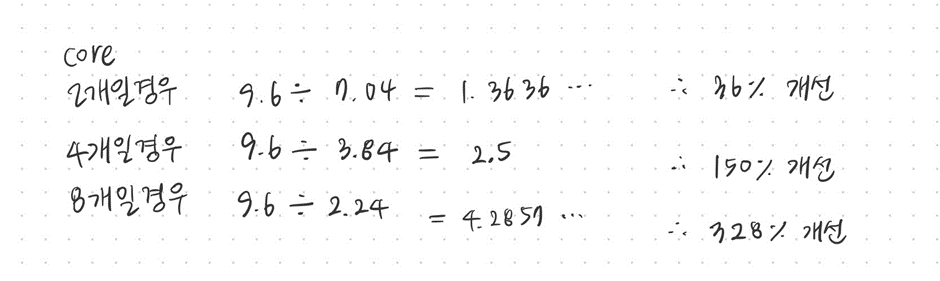 core
2개일경우 9.6 ÷ 7.04 = 1.3636 ··· ∴ 36% 개선
4개일경우 9.6 ÷ 3.84 = 2.5 ∴ 150% 개선
8개일경우 9.6 ÷ 2.24 = 4.2857 ··· ∴ 328% 개선